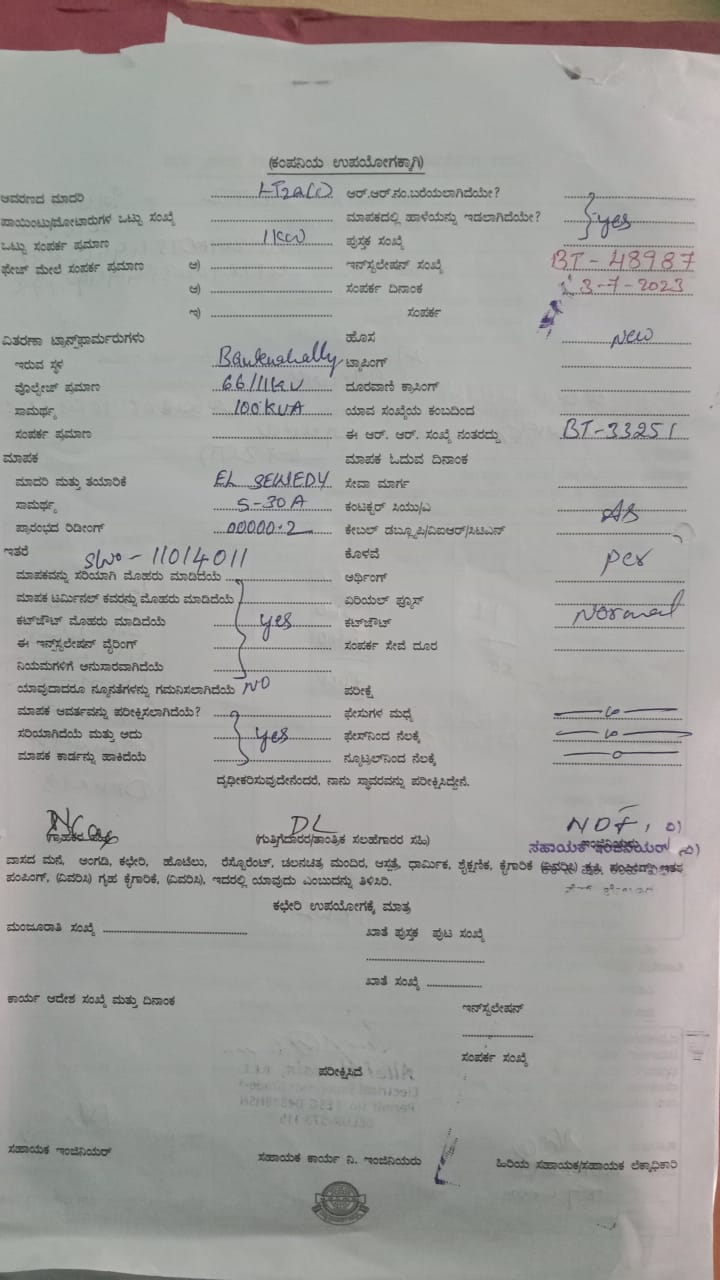 (ಕಂಪನಿಯ ಉಪಯೋಗಕ್ಕಾಗಿ)
ಆವರಣದ ಮಾದರಿ LT2a(i) ಆರ್.ಆರ್.ನಂ.ಬರೆಯಲಾಗಿದೆಯೇ?
ಪಾಯಿಂಟು/ಮೋಟಾರುಗಳ ಒಟ್ಟು ಸಂಖ್ಯೆ ಮಾಪಕದಲ್ಲಿ ಹಾಳೆಯನ್ನು ಇಡಲಾಗಿದೆಯೇ? yes
ಒಟ್ಟು ಸಂಪರ್ಕ ಪ್ರಮಾಣ 1KW ಪುಸ್ತಕ ಸಂಖ್ಯೆ
ಫೇಜ್ ಮೇಲೆ ಸಂಪರ್ಕ ಪ್ರಮಾಣ ಅ) ಇನ್‌ಸ್ಟಲೇಷನ್ ಸಂಖ್ಯೆ BT-48987
ಆ) ಸಂಪರ್ಕ ದಿನಾಂಕ 3-7-2023
ಇ) ಸಂಪರ್ಕ
ವಿತರಣಾ ಟ್ರಾನ್ಸ್‌ಫಾರ್ಮರುಗಳು ಹೊಸ New
ಇರುವ ಸ್ಥಳ ಟ್ಯಾಪಿಂಗ್
ವೊಲ್ಟೇಜ್ ಪ್ರಮಾಣ 66/11KV ದೂರವಾಣಿ ಕ್ರಾಸಿಂಗ್
ಸಾಮರ್ಥ್ಯ 100KVA ಯಾವ ಸಂಖ್ಯೆಯ ಕಂಬದಿಂದ
ಸಂಪರ್ಕ ಪ್ರಮಾಣ ಈ ಆರ್. ಆರ್. ಸಂಖ್ಯೆ ನಂತರದ್ದು BT-33251
ಮಾಪಕ ಮಾಪಕ ಓದುವ ದಿನಾಂಕ
ಮಾದರಿ ಮತ್ತು ತಯಾರಿಕೆ EL SEWEDY ಸೇವಾ ಮಾರ್ಗ
ಸಾಮರ್ಥ್ಯ 5-30A ಕಂಟಕ್ಟರ್ ಸಿಯು/ಎ AS
ಪ್ರಾರಂಭದ ರಿಡೀಂಗ್ 00000.2 ಕೇಬಲ್ ಡಬ್ಲ್ಯೂಪಿ/ವಿಐಆರ್/ಸಿಟಿಎಸ್
ಇತರೆ SlNo-11014011 ಕೊಳವೆ per
ಮಾಪಕವನ್ನು ಸರಿಯಾಗಿ ಮೊಹರು ಮಾಡಿದೆಯೆ ಅರ್ಥಿಂಗ್
ಮಾಪಕ ಟರ್ಮಿನಲ್ ಕವರನ್ನು ಮೊಹರು ಮಾಡಿದೆಯೆ ಏರಿಯಲ್ ಫ್ಯೂಸ್ Normal
ಕಟ್‌ಔಟ್ ಮೊಹರು ಮಾಡಿದೆಯೆ yes ಕಟ್‌ಔಟ್
ಈ ಇನ್‌ಸ್ಟಲೇಷನ್ ವೈರಿಂಗ್ ಸಂಪರ್ಕ ಸೇವೆ ದೂರ
ನಿಯಮಗಳಿಗೆ ಅನುಸಾರವಾಗಿದೆಯೆ
ಯಾವುದಾದರೂ ನ್ಯೂನತೆಗಳನ್ನು ಗಮನಿಸಲಾಗಿದೆಯೆ NO ಪರೀಕ್ಷೆ
ಮಾಪಕ ಆವರ್ತವನ್ನು ಪರೀಕ್ಷಿಸಲಾಗಿದೆಯೆ? ಫೇಸುಗಳ ಮಧ್ಯೆ
ಸರಿಯಾಗಿದೆಯೆ ಮತ್ತು ಅದು yes ಫೇಸ್‌ನಿಂದ ನೆಲಕ್ಕೆ
ಮಾಪಕ ಕಾರ್ಡನ್ನು ಹಾಕಿದೆಯೆ ನ್ಯೂಟ್ರಲ್‌ನಿಂದ ನೆಲಕ್ಕೆ
ದೃಢೀಕರಿಸುವುದೇನೆಂದರೆ, ನಾನು ಸ್ಥಾವರವನ್ನು ಪರೀಕ್ಷಿಸಿದ್ದೇನೆ.
DL
(ಗುತ್ತಿಗೆದಾರರ/ತಾಂತ್ರಿಕ ಸಲಹೆಗಾರರ ಸಹಿ)
ಸಹಾಯಕ ಇಂಜಿನಿಯರ್
ವಾಸದ ಮನೆ, ಅಂಗಡಿ, ಕಛೇರಿ, ಹೋಟೆಲು, ರೆಸ್ಟೋರೆಂಟ್, ಚಲನಚಿತ್ರ ಮಂದಿರ, ಆಸ್ಪತ್ರೆ, ಧಾರ್ಮಿಕ, ಶೈಕ್ಷಣಿಕ, ಕೈಗಾರಿಕೆ (ವಿವರಿಸಿ)
ಪಂಪಿಂಗ್, (ವಿವರಿಸಿ) ಗೃಹ ಕೈಗಾರಿಕೆ, (ವಿವರಿಸಿ), ಇದರಲ್ಲಿ ಯಾವುದು ಎಂಬುದನ್ನು ತಿಳಿಸಿರಿ.
ಕಛೇರಿ ಉಪಯೋಗಕ್ಕೆ ಮಾತ್ರ
ಮಂಜೂರಾತಿ ಸಂಖ್ಯೆ ಖಾತೆ ಪುಸ್ತಕ ಪುಟ ಸಂಖ್ಯೆ
ಖಾತೆ ಸಂಖ್ಯೆ
ಕಾರ್ಯ ಆದೇಶ ಸಂಖ್ಯೆ ಮತ್ತು ದಿನಾಂಕ ಇನ್‌ಸ್ಟಲೇಷನ್
ಸಂಪರ್ಕ ಸಂಖ್ಯೆ
ಪರೀಕ್ಷಿಸಿದೆ
ಸಹಾಯಕ ಇಂಜಿನಿಯರ್ ಸಹಾಯಕ ಕಾರ್ಯ ನಿ. ಇಂಜಿನಿಯರು ಹಿರಿಯ ಸಹಾಯಕ/ಸಹಾಯಕ ಲೆಕ್ಕಾಧಿಕಾರಿ